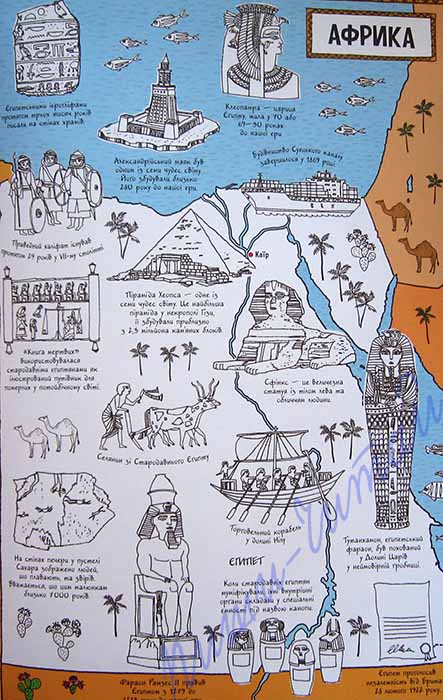 АФРИКА
Єгипетськими ієрогліфами
протягом трьох тисяч років
писали на стінах храмів.
Клеопатра — цариця
Єгипту, жила у 70 або
69–30 роках
до нашої ери.
Александрійський маяк був
одним із семи чудес світу.
Його збудували близько
280 року до нашої ери.
Будівництво Суецького каналу
завершилося у 1869 році.
Праведний халіфат існував
протягом 29 років у VII-му столітті.
Каїр
Піраміда Хеопса — одне із
семи чудес світу. Це найбільша
піраміда у некрополі Гізи,
її збудували приблизно
з 2,5 мільйона кам'яних блоків.
«Книга мертвих»
використовувалася
стародавніми єгиптянами як
ілюстрований путівник для
померлих у потойбічному світі.
Сфінкс — це величезна
статуя із тілом лева та
обличчям людини.
Селянин зі Стародавнього Єгипту
Торговельний корабель
у долині Нілу
Тутанхамон, єгипетський
фараон, був похований
у Долині Царів
у неймовірній гробниці.
На стінах печери у пустелі
Сахара зображено людей,
що плавають, та звірів.
Вважається, що цим малюнкам
близько 7000 років.
ЄГИПЕТ
Коли стародавніх єгиптян
муміфікували, їхні внутрішні
органи складали у спеціальні
ємності під назвою канопи.
Фараон Рамзес II правив
Єгиптом з 1279 до
Єгипет проголосив
незалежність від Британії
28 лютого 1922 року.